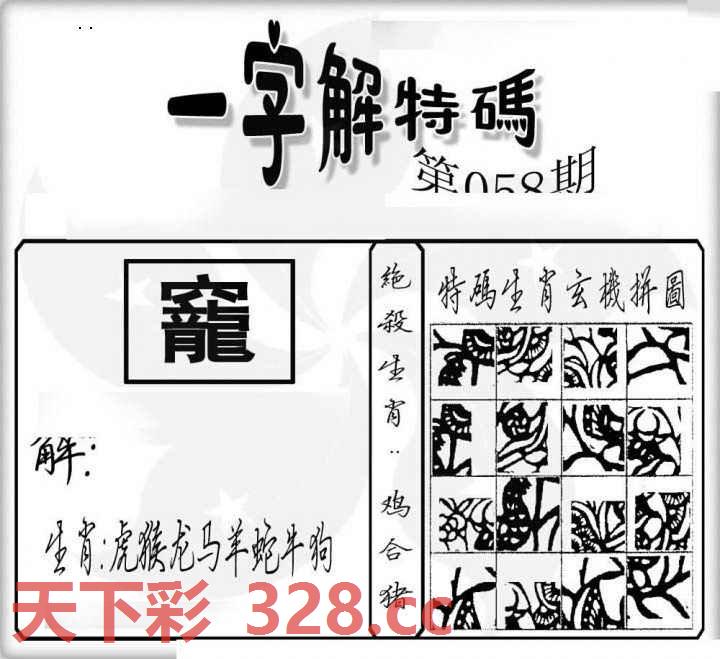 一字解特碼
第058期
竉
解:
生肖:虎猴龙马羊蛇牛狗
絕殺生肖:鸡合猪
特碼生肖玄機拼圖
天下彩 328.cc